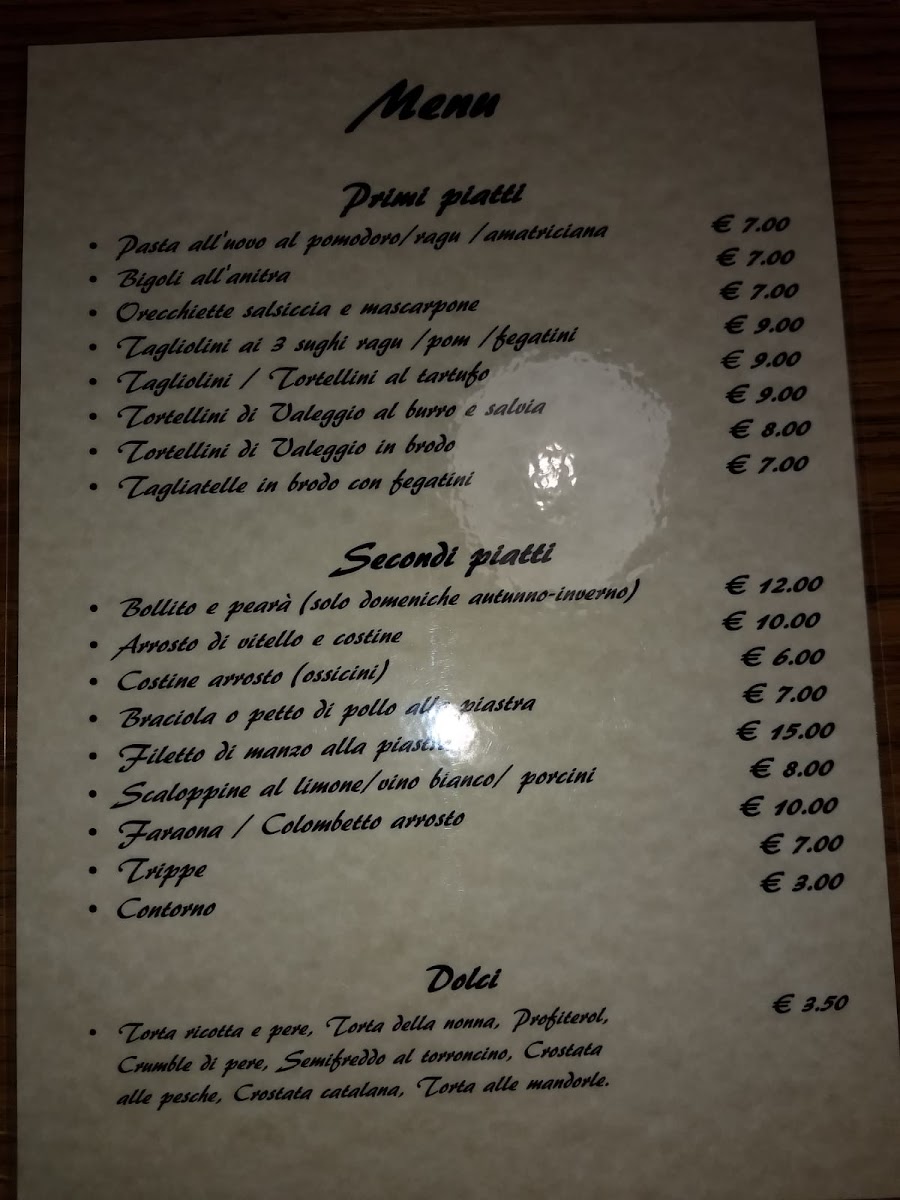 Menu
Primi piatti
• Pasta all'uovo al pomodoro/ragu /amatriciana € 7.00
• Bigoli all'anitra € 7.00
• Orecchiette salsiccia e mascarpone € 7.00
• Tagliolini ai 3 sughi ragu /pom /fegatini € 9.00
• Tagliolini / Tortellini al tartufo € 9.00
• Tortellini di Valeggio al burro e salvia € 9.00
• Tortellini di Valeggio in brodo € 8.00
• Tagliatelle in brodo con fegatini € 7.00
Secondi piatti
• Bollito e pearà (solo domeniche autunno-inverno) € 12.00
• Arrosto di vitello e costine € 10.00
• Costine arrosto (ossicini) € 6.00
• Braciola o petto di pollo alla piastra € 7.00
• Filetto di manzo alla piastra € 15.00
• Scaloppine al limone/vino bianco/ porcini € 8.00
• Faraona / Colombetto arrosto € 10.00
• Trippe € 7.00
• Contorno € 3.00
Dolci
• Torta ricotta e pere, Torta della nonna, Profiterol, € 3.50
Crumble di pere, Semifreddo al torroncino, Crostata
alle pesche, Crostata catalana, Torta alle mandorle.